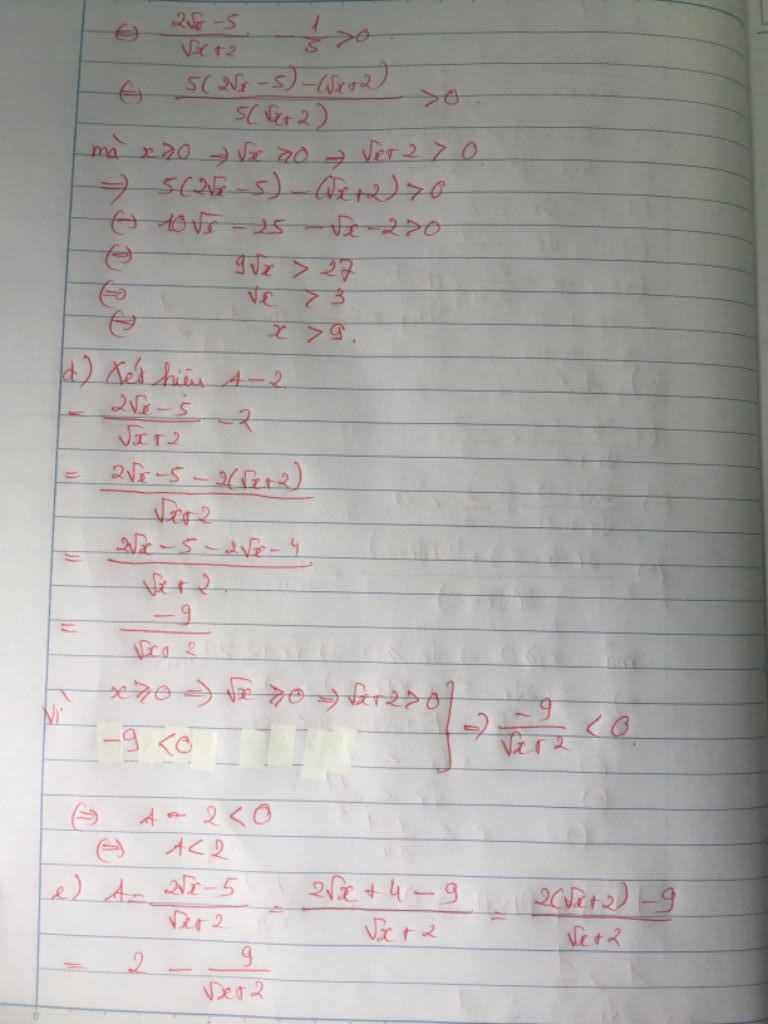 ⇔ (2√x - 5)/(√x+2) - 1/5 > 0
⇔ (5(2√x - 5) - (√x+2))/(5(√x+2)) > 0.
mà x ≥ 0 ⇒ √x ≥ 0 ⇒ √x+2 > 0
⇒ 5(2√x - 5) - (√x+2) > 0
⇔ 10√x - 25 - √x - 2 > 0
⇔ 9√x > 27
⇔ √x > 3
⇔ x > 9.
d) Xét hiệu A - 2
= (2√x - 5)/(√x+2) - 2
= (2√x - 5 - 2(√x+2))/(√x+2)
= (2√x - 5 - 2√x - 4)/(√x+2)
= -9/(√x+2)
Vì x ≥ 0 ⇒ √x ≥ 0 ⇒ √x+2 > 0
-9 < 0 } ⇒ -9/(√x+2) < 0.
⇔ A - 2 < 0
⇔ A < 2
e) A = (2√x - 5)/(√x+2) = (2√x + 4 - 9)/(√x+2) = (2(√x+2) - 9)/(√x+2)
= 2 - 9/(√x+2)